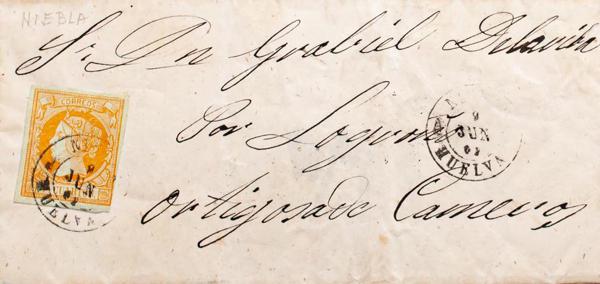 NIEBLA
Sr Dn Grabiel Delavida
CORREOS
Por Logroño
9
JUN
HUELVA
9
JUN
HUELVA
Ortigosa de Cameros